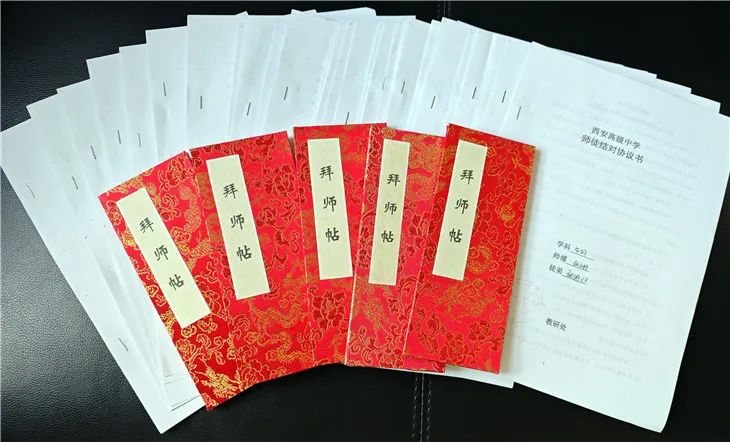 拜师帖
拜师帖
拜师帖
拜师帖
拜师帖
西安高级中学
师徒结对协议书
学科
师傅
徒弟
教研处